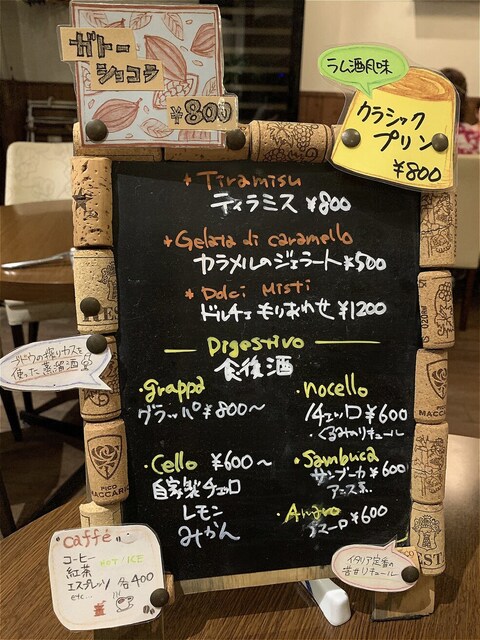 ガトー
ショコラ
¥800
ラム酒風味
クラシック
プリン
¥800
+ Tiramisu
ティラミス ¥800
+ Gelata di caramello
カラメルのジェラート ¥500
+ Dolci Misti
ドルチェ もりあわせ ¥1200
Digestivo
食後酒
・grappa
グラッパ ¥800〜
・nocello
ノチェッロ ¥600
・くるみのリキュール
・Cello ¥600〜
自家製チェロ
レモン
みかん
・Sambuca
サンブーカ ¥600
アニス系
・Amaro
アマーロ ¥600
ブドウの搾りカスを
使った蒸留酒
caffé
コーヒー HOT/ICE
紅茶
エスプレッソ 各400
etc...
イタリア定番の
苦汁リキュール
PICO
MACCARIO